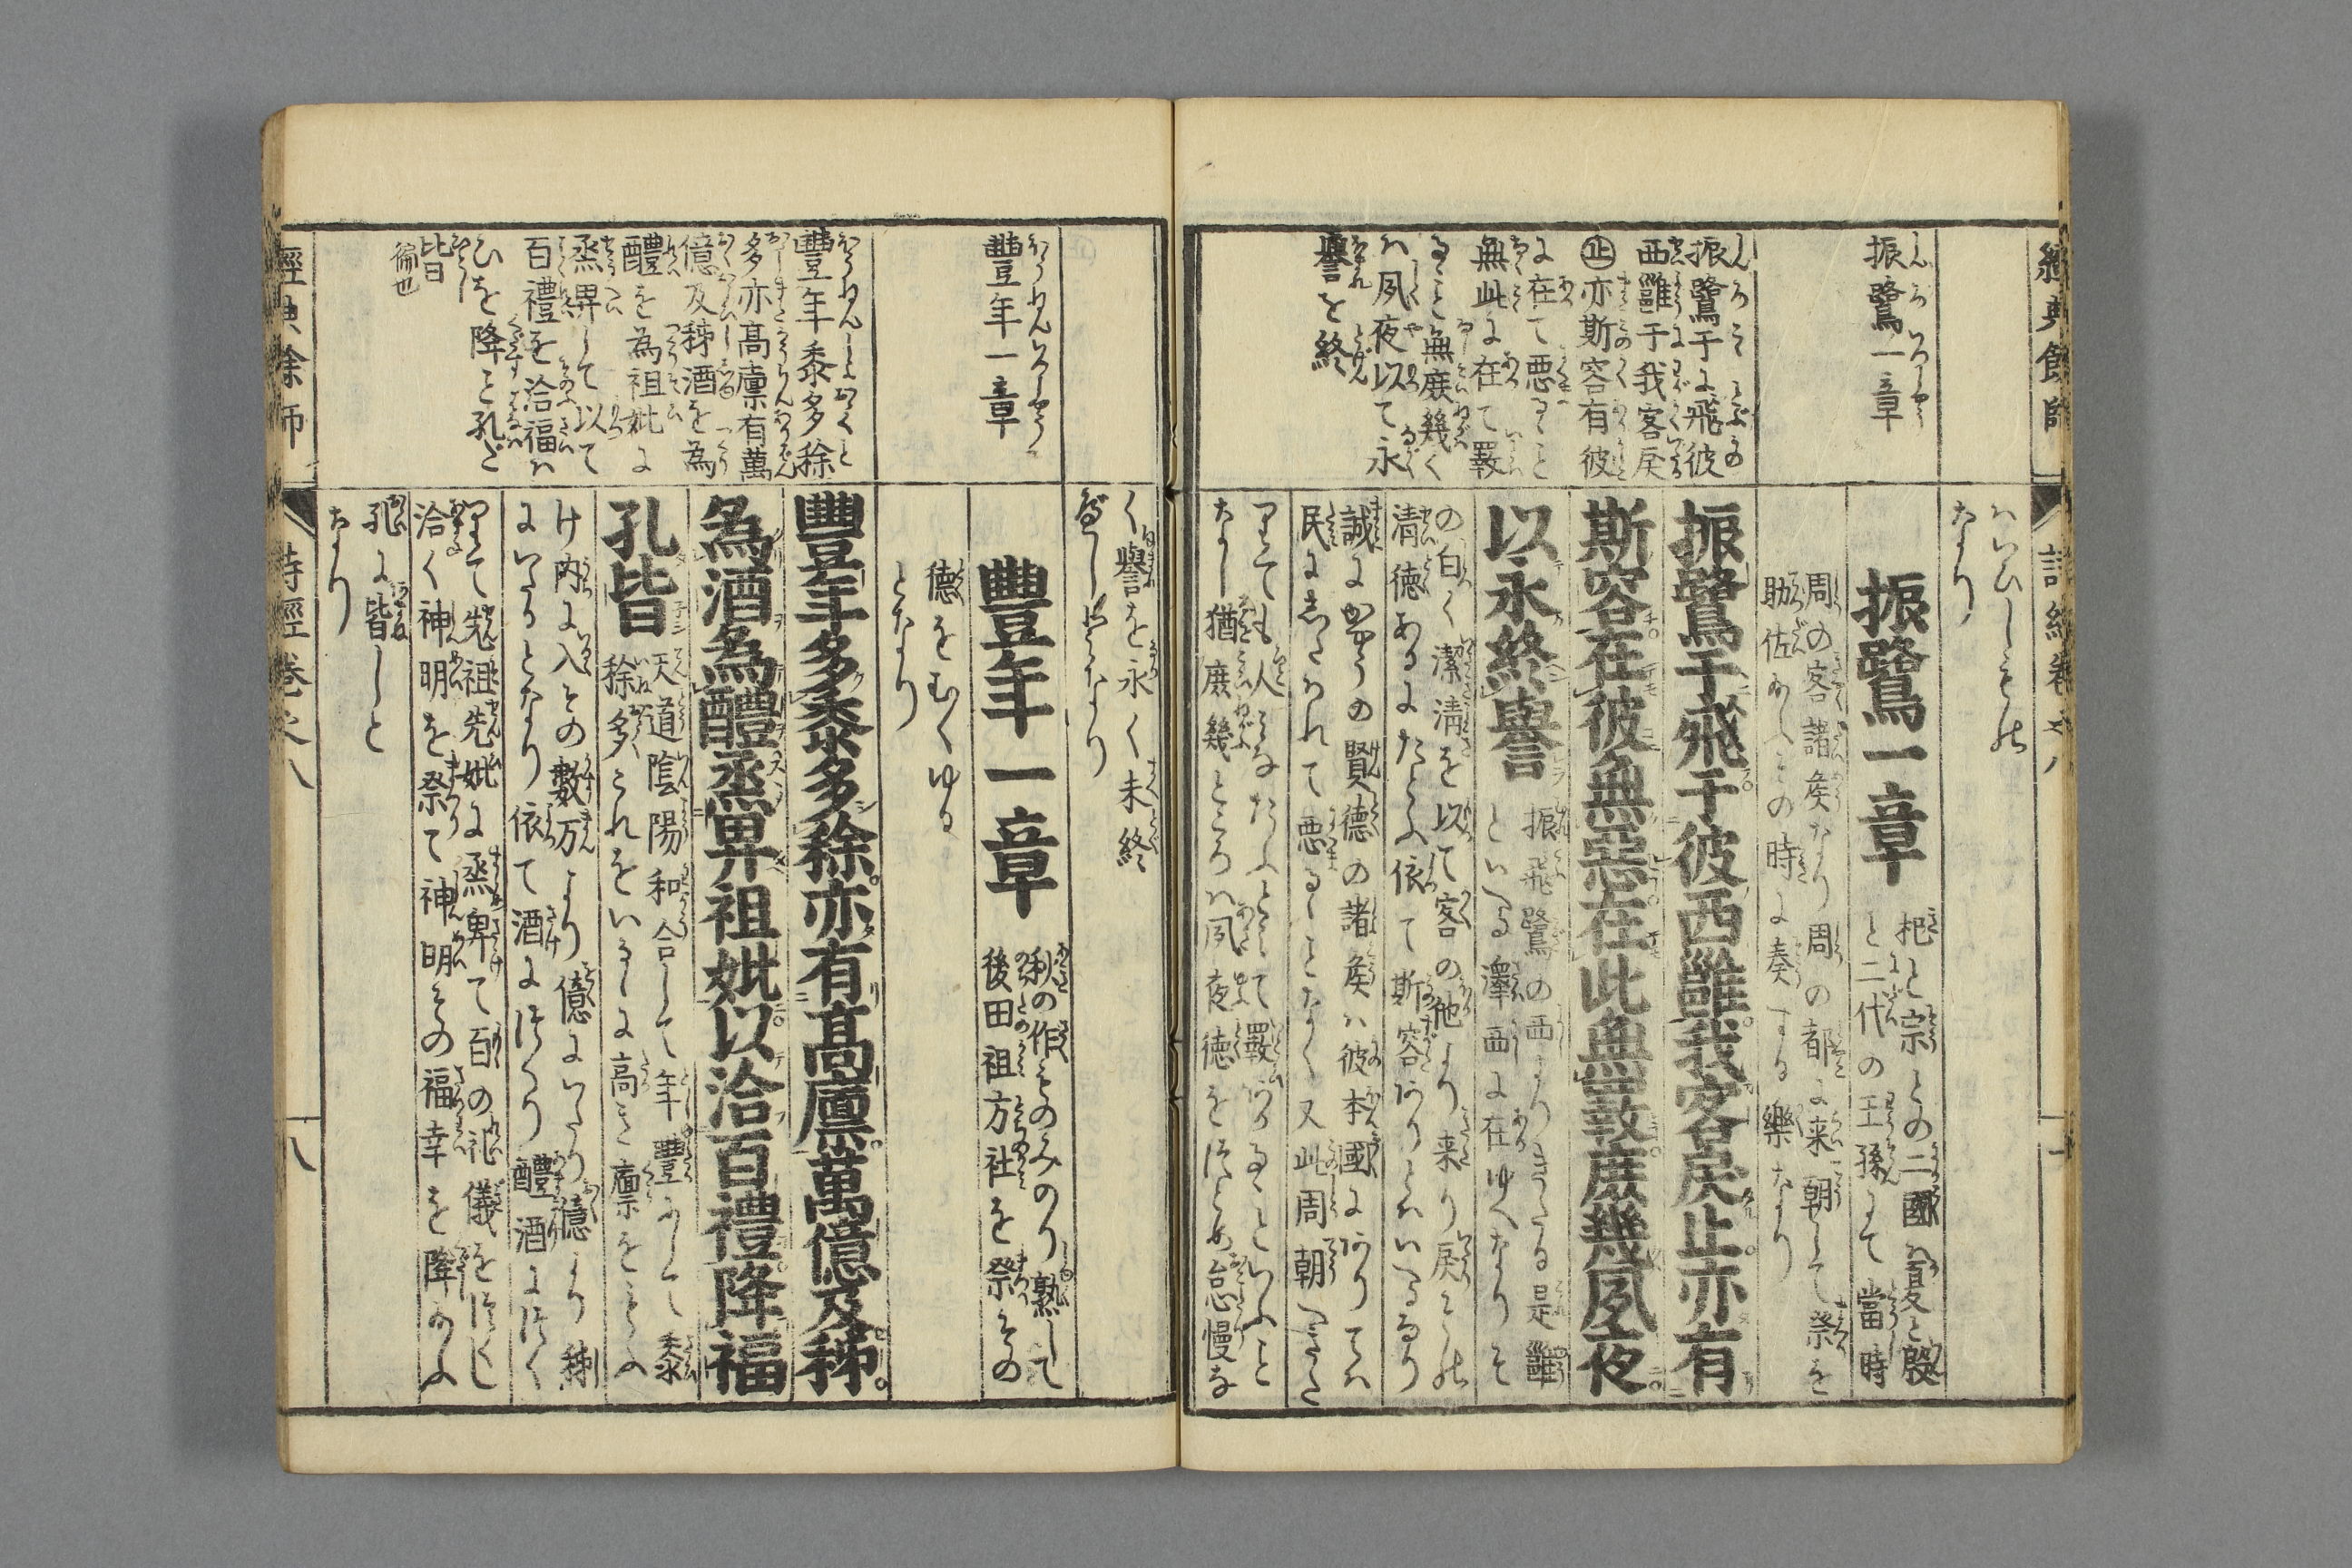 經典餘師
詩經卷之八
なり
振鷺一章
振鷺于飛彼
西雝于我客戻
止亦斯容有彼
に在て悪こと
無此に在て斁
こと無庶幾く
ハ夙夜以て永
譽を終
振鷺一章
杞と宗との二國ハ夏と殷
と二代の王孫にて當時
周の客諸矦なり周の都に来朝して祭を
助佐あふとの時に奏する樂なり
振鷺于飛于彼西雝我客戻止亦有
斯容在彼無惡在此無斁庶幾夙夜
以永終譽
振飛鷺の西よりきたる是雝
といへる澤西に在ゆへなりそ
の白く潔淸を以て客の他より来り戻
淸徳あるにたとふ依て斯容ありとハいへるなり
誠にかやうの賢德の諸矦ハ彼本國にありてハ
民にしたハれて悪ることなく又此周朝へきた
りても人みなたふとみて斁ふることいふこと
なし猶庶幾ところハ夙夜徳をつとめ怠慢な
く譽を永く末終
べしとなり
豐年一章
豐年黍多稌
多亦高廩有萬
億及秭酒を為
醴を為祖妣に
烝畀して以て
百禮を洽福ハ
ひを降こと孔だ
皆
徧也
豐年一章
秋の作ものみのり熟してその
後田祖方社を祭その
德をむくゆる
となり
豐年多黍多稌亦有髙廩萬億及秭
為酒為醴烝畀祖妣以洽百禮降福
孔皆
天道陰陽和合して年豐にして黍
稌多これをいるゝに高き廩をもとふ
け内に入その數万より億にいたり億より秭
にいたるとなり依て酒につくり醴酒につく
りて先祖先妣に烝畀て百の礼儀をつくし
洽く神明を祭て神明その福幸を降たまふ
孔に皆しと
なり
經典餘師
詩經卷之八
八